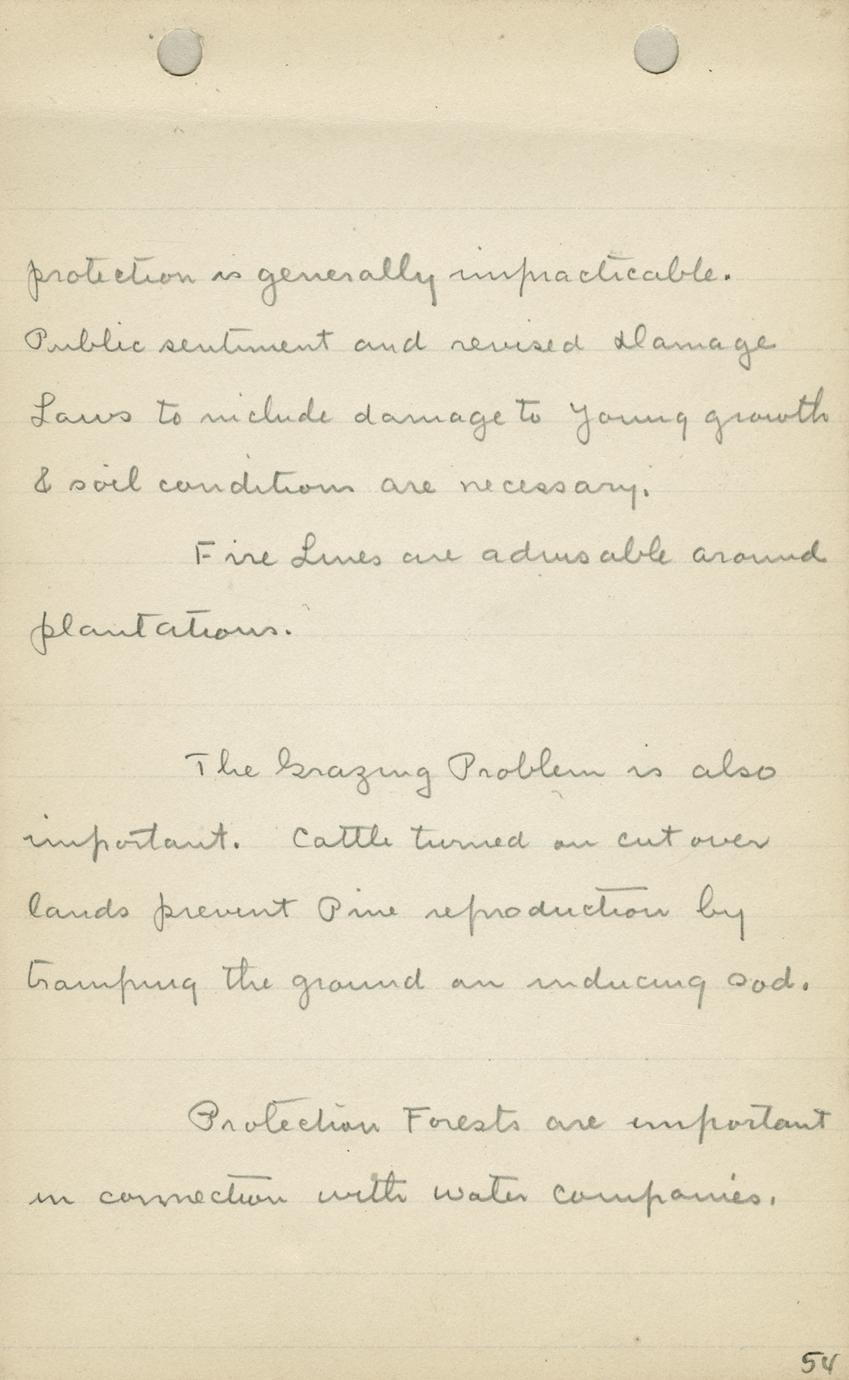 protection is generally impracticable.
Public sentiment and revised Damage
Laws to include damage to young growth
& soil conditions are necessary.
Fire Lines are advisable around
plantations.
The Grazing Problem is also
important. Cattle turned on cut over
lands prevent Pine reproduction by
tramping the ground an inducing sod.
Protection Forests are important
in connection with water companies.
54